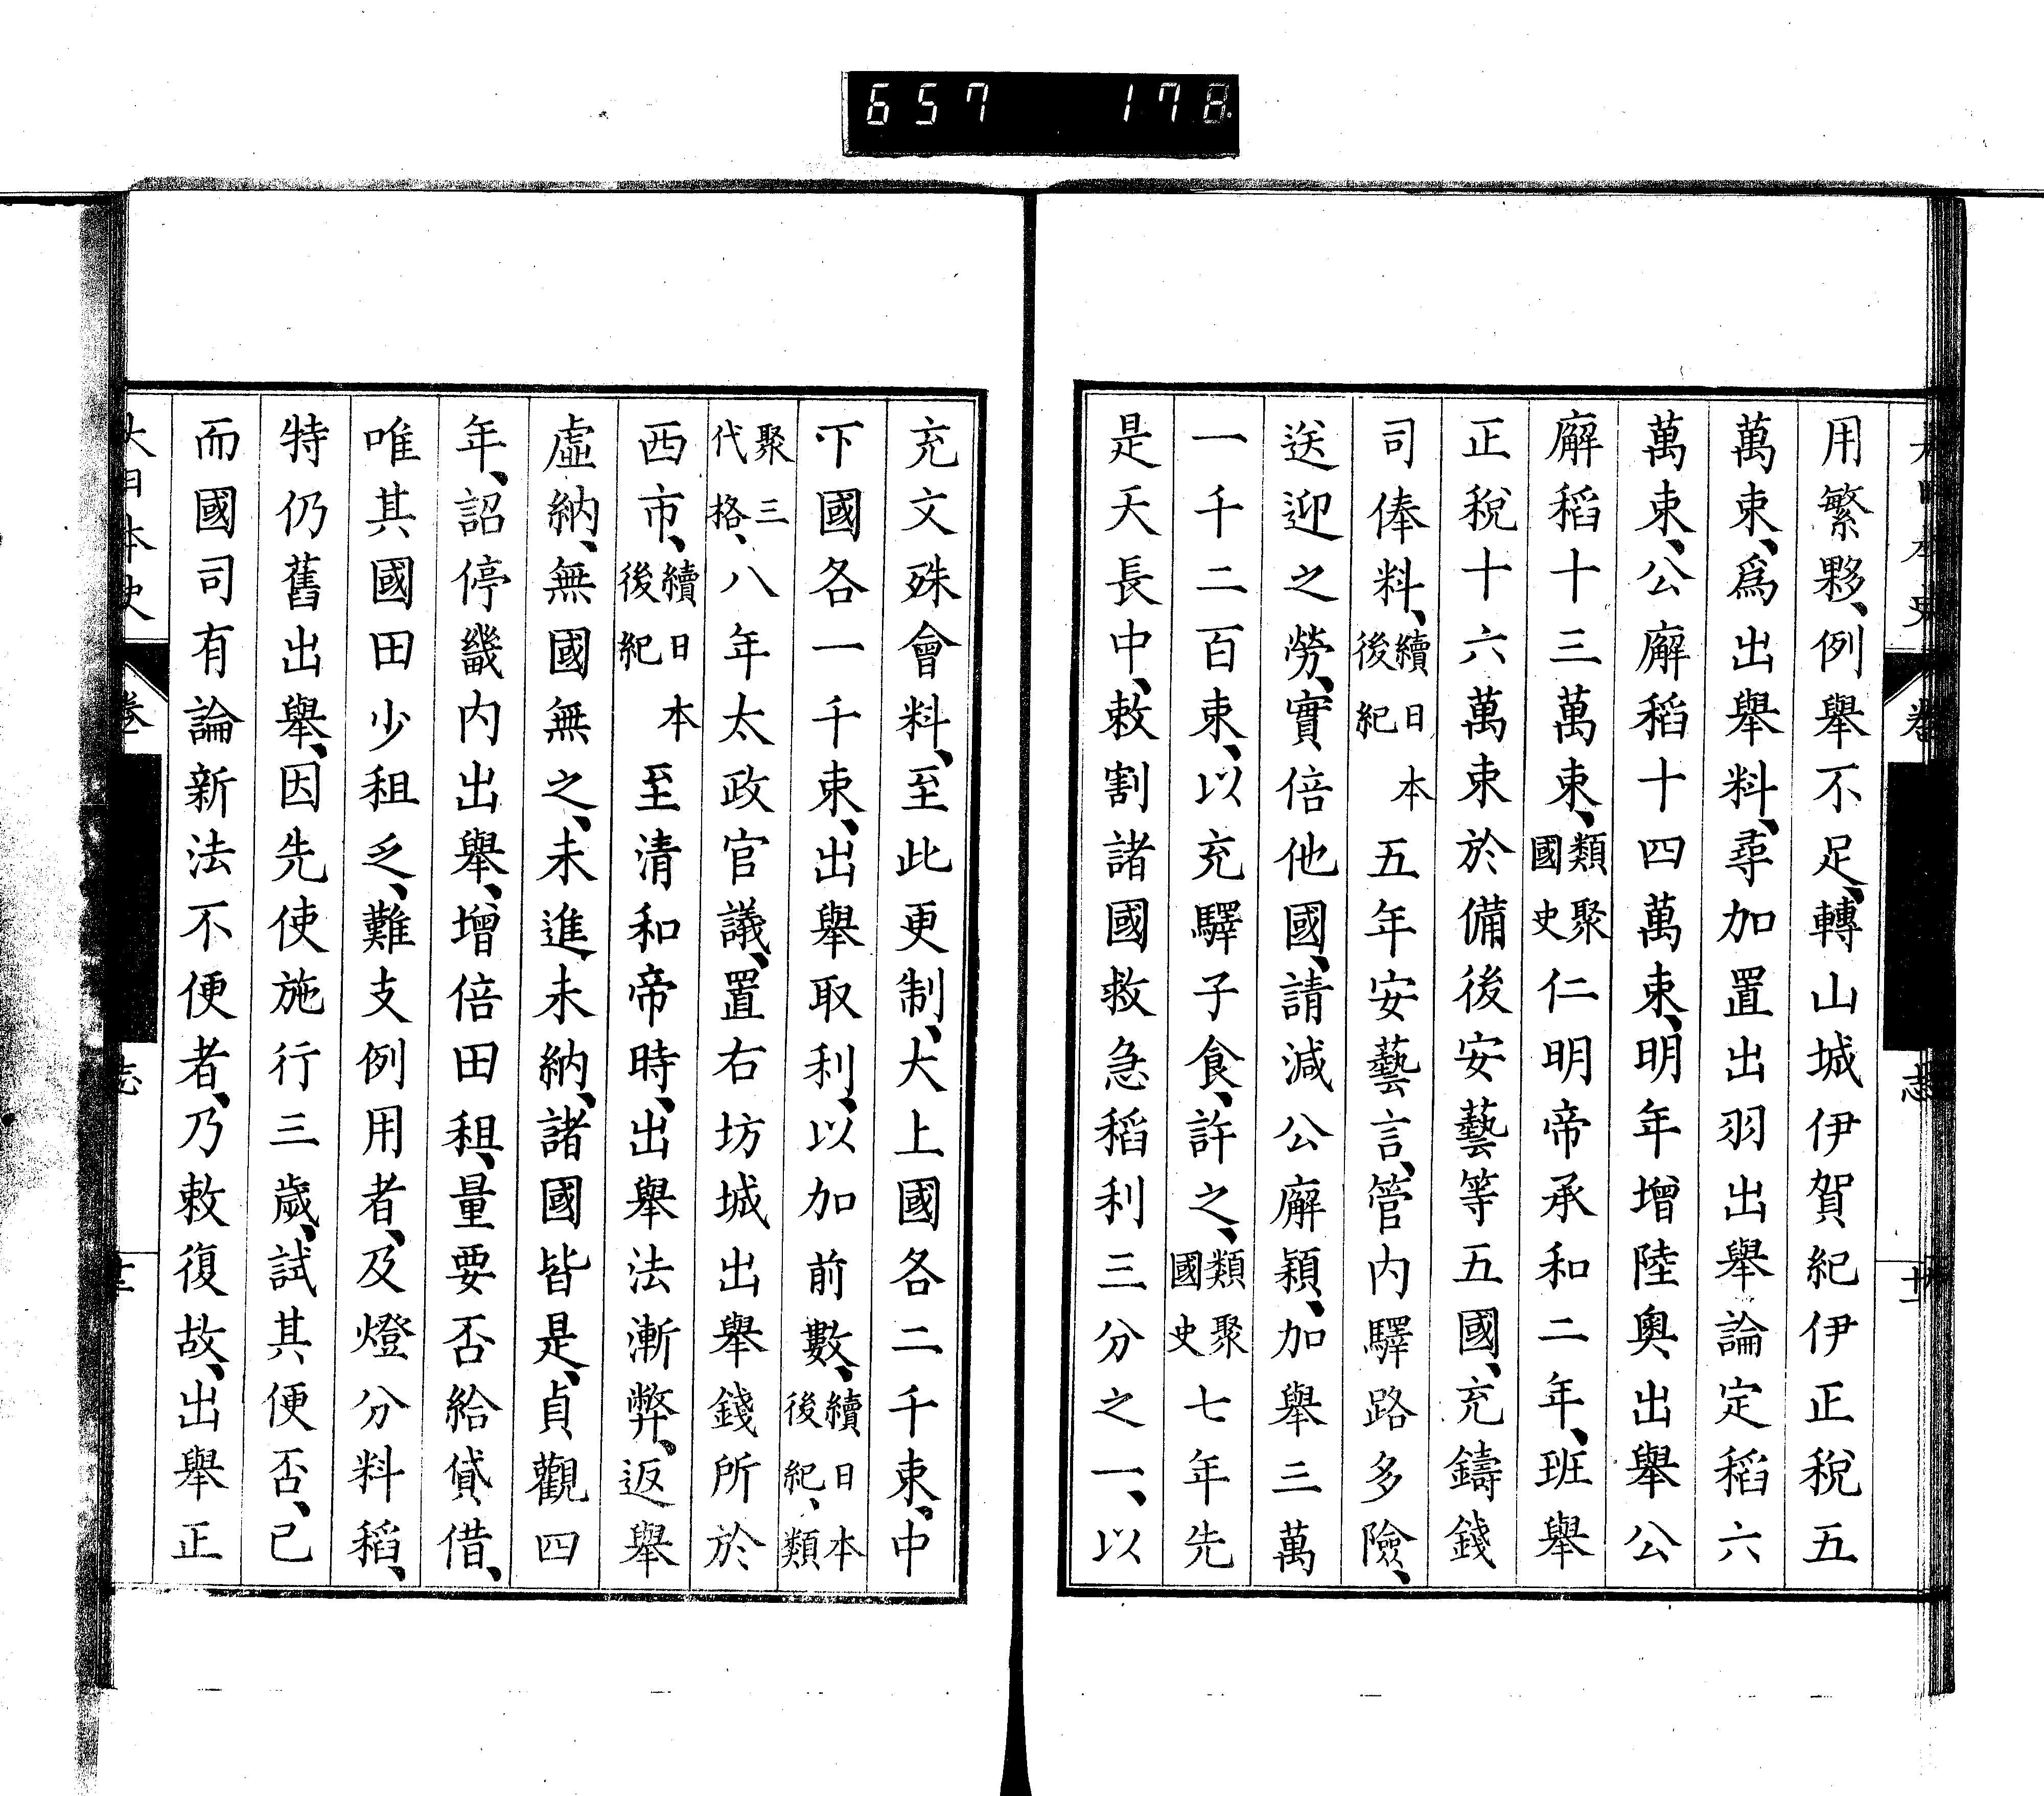 657 178
用繁夥、例舉不足、轉山城伊賀紀伊正稅五
萬束、爲出舉料、尋加置出羽出舉論定稻六
萬束、公廨稻十四萬束、明年增陸奧出舉公
廨稻十三萬束、類聚國史仁明帝承和二年、班舉
正稅十六萬束於備後安藝等五國、充鑄錢
司俸料、續日本後紀五年安藝言、管内驛路多險、
送迎之勞、實倍他國、請減公廨穎、加舉三萬
一千二百束、以充驛子食、許之、類聚國史七年先
是天長中、敕割諸國救急稻利三分之一、以
充文殊會料、至此更制、大上國各二千束、中
下國各一千束、出舉取利、以加前數、續日本後紀、類
聚三代格、八年太政官議、置右坊城出舉錢所於
西市、續日本後紀至清和帝時、出舉法漸弊、返舉
虛納、無國無之、未進未納、諸國皆是、貞觀四
年、詔停畿内出舉、增倍田租、量要否給貸借、
唯其國田少租乏、難支例用者、及燈分料稻、
特仍舊出舉、因先使施行三歲、試其便否、已
而國司有論新法不便者、乃敕復故、出舉正
大日本史 卷 志